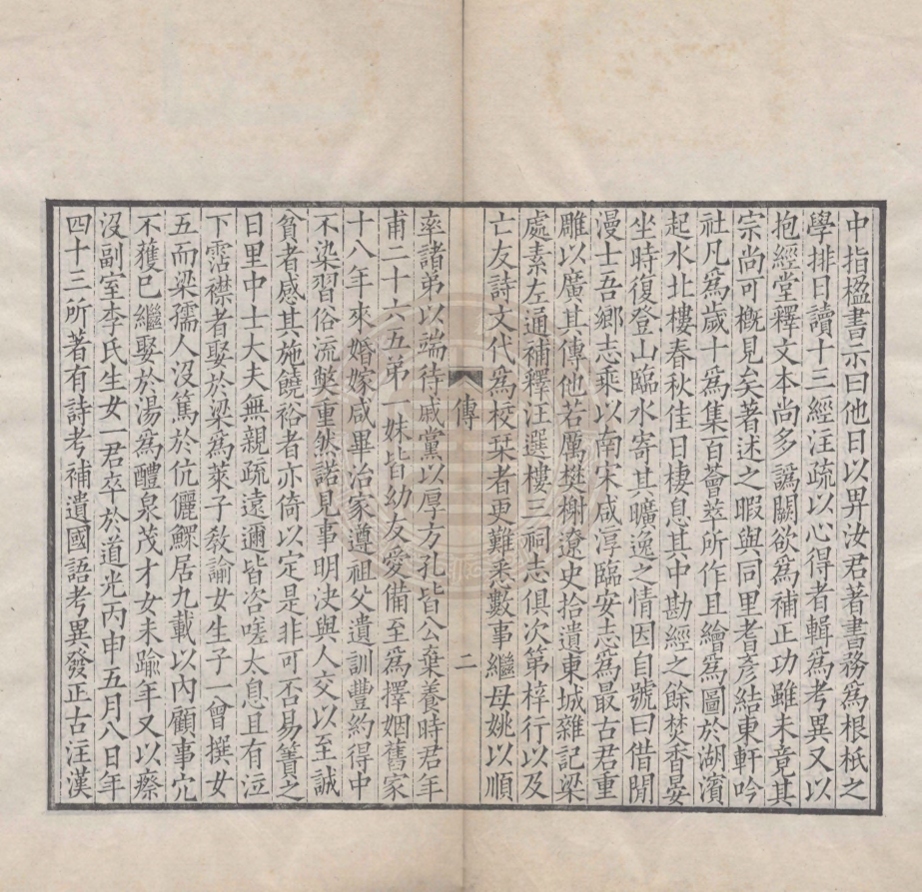 中指楹書示曰他日以畀汝君著書務爲根柢之
學排日讀十三經注疏以心得者輯爲考異又以
抱經堂釋文本尚多譌闕欲爲補正功雖未竟其
宗尚可槪見矣著述之暇與同里耆彥結東軒吟
社凡爲歲十爲集百薈萃所作且繪爲圖於湖濱
起水北樓春秋佳日棲息其中勘經之餘焚香晏
坐時復登山臨水寄其曠逸之情因自號曰借閒
漫士吾鄉志乘以南宋咸淳臨安志爲最古君重
雕以廣其傳他若厲樊榭遼史拾遺東城雜記梁
處素左通補釋汪選樓三祠志俱次第梓行以及
亡友詩文代爲校栞者更難悉數事繼母姚以順
傳
二
率諸弟以端待戚黨以厚方孔皆公棄養時君年
甫二十六五弟一妹皆幼友愛備至爲擇姻舊家
十八年來婚嫁咸畢治家遵祖父遺訓豐約得中
不染習俗流弊重然諾見事明決與人交以至誠
貧者感其施饒裕者亦倚以定是非可否易簀之
日里中士大夫無親疏遠邇皆咨嗟太息且有泣
下霑襟者娶於梁爲萊子敎諭女生子一曾撰女
五而梁孺人沒篤於伉儷鰥居九載以內顧事宂
不獲已繼娶於湯爲醴泉茂才女未踰年又以瘵
沒副室李氏生女一君卒於道光丙申五月八日年
四十三所著有詩考補遺國語考異發正古注漢